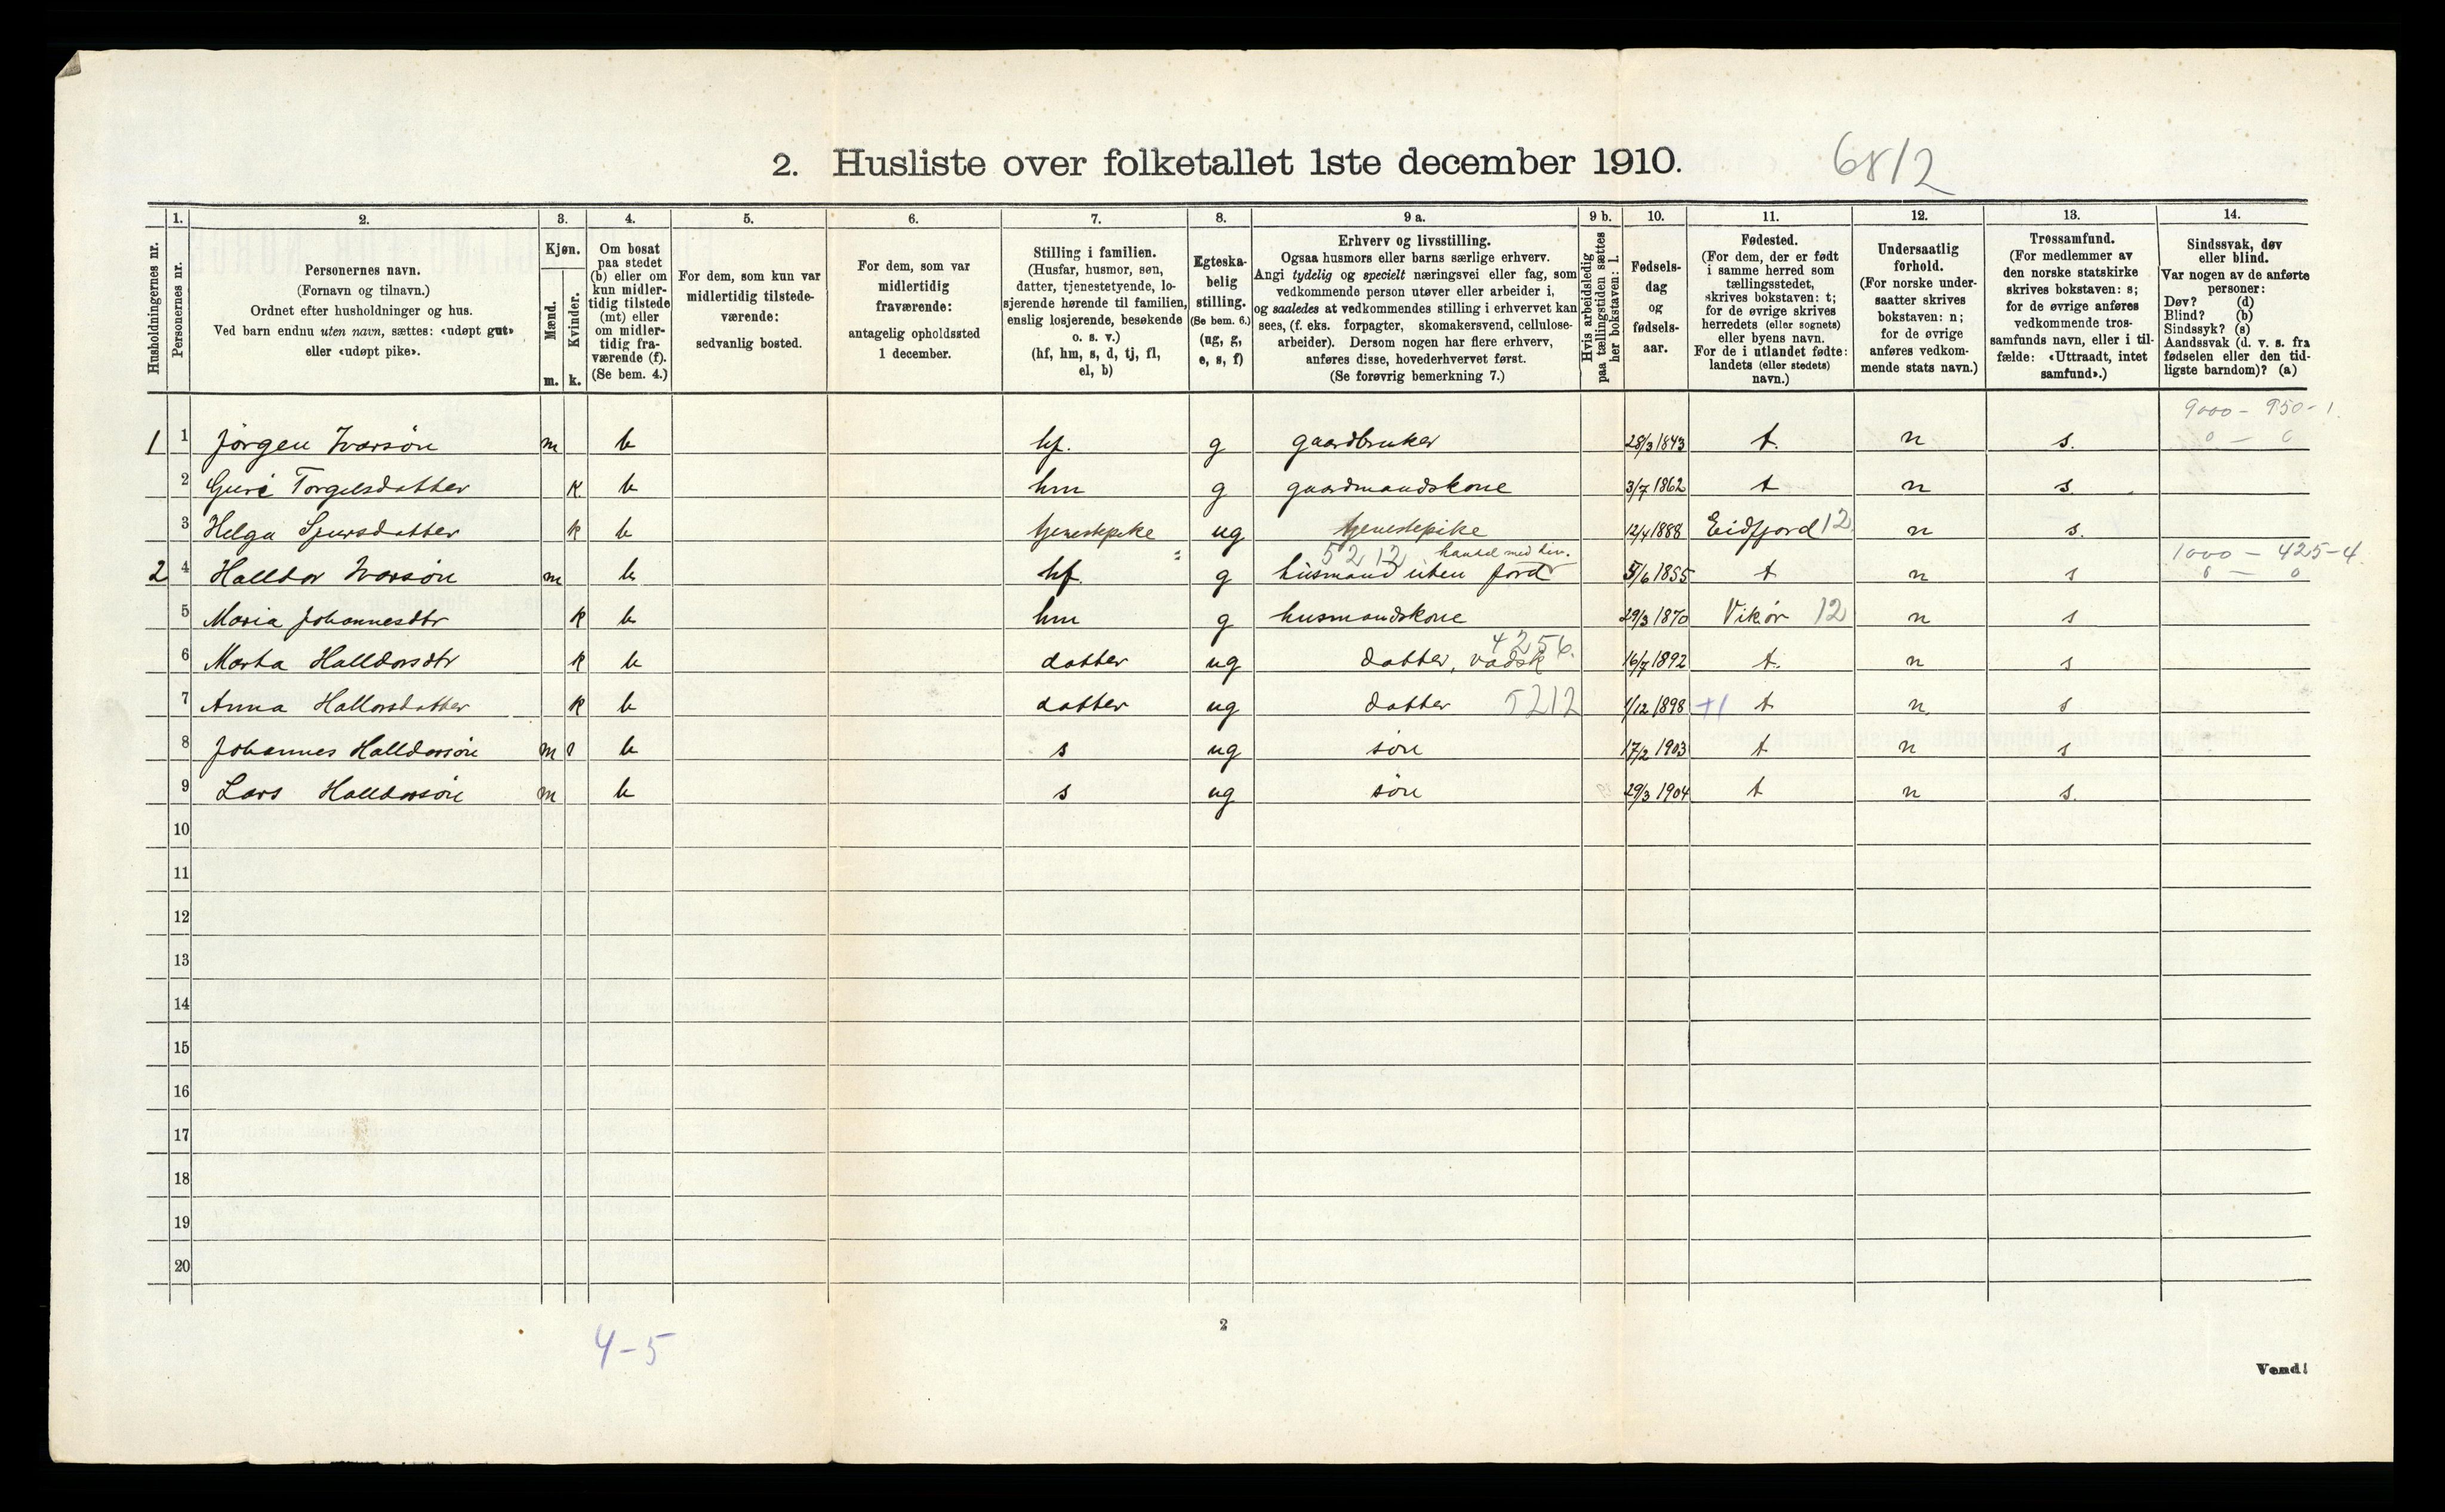 2. Husliste over folketallet 1ste december 1910.
6812
Husholdningernes nr.
1.
Personernes nr.
2.
Personernes navn.
(Fornavn og tilnavn.)
Ordnet efter husholdninger og hus.
Ved barn endnu uten navn, sættes: «udøpt gut»
eller «udøpt pike».
3.
Kjøn.
Mænd.
m.
Kvinder.
k.
4.
Om bosat
paa stedet
(b) eller om
kun midler-
tidig tilstede
(mt) eller
om midler-
tidig fra-
værende (f).
(Se bem. 4.)
5.
For dem, som kun var
midlertidig tilstede-
værende:
sedvanlig bosted.
6.
For dem, som var
midlertidig
fraværende:
antagelig opholdssted
1 december.
7.
Stilling i familien.
(Husfar, husmor, søn,
datter, tjenestetyende, lo-
sjerende hørende til familien,
enslig losjerende, besøkende
o. s. v.)
(hf, hm, s, d, tj, fl,
el, b)
8.
Egteska-
belig
stilling.
(Se bem. 6.)
(ug, g,
e, s, f)
9 a.
Erhverv og livsstilling.
Ogsaa husmors eller barns særlige erhverv.
Angi tydelig og specielt næringsvei eller fag, som
vedkommende person utøver eller arbeider i,
og saaledes at vedkommendes stilling i erhvervet kan
sees, (f. eks. forpagter, skomakersvend, cellulose-
arbeider). Dersom nogen har flere erhverv,
anføres disse, hovederhvervet først.
(Se forøvrig bemerkning 7.)
9 b.
Hvis arbeidsledig
paa tællingstiden sættes
her bokstaven: l.
10.
Fødsels-
dag
og
fødsels-
aar.
11.
Fødested.
(For dem, der er født
i samme herred som
tællingsstedet,
skrives bokstaven: t;
for de øvrige skrives
herredets (eller sognets)
eller byens navn.
For de i utlandet fødte:
landets (eller stedets)
navn.)
12.
Undersaatlig
forhold.
(For norske under-
saatter skrives
bokstaven: n;
for de øvrige
anføres vedkom-
mende stats navn.)
13.
Trossamfund.
(For medlemmer av
den norske statskirke
skrives bokstaven: s;
for de øvrige anføres
vedkommende tros-
samfunds navn, eller i til-
fælde: «Uttraadt, intet
samfund».)
14.
Sindssvak, døv
eller blind.
Var nogen av de anførte
personer:
Døv? (d)
Blind? (b)
Sindssyk? (s)
Aandssvak (d. v. s. fra
fødselen eller den tid-
ligste barndom)? (a)
9000 - 950 - 1.
1 1 Jørgen Ivarsøn m b hf. g gaardbruker 28/3 1843 t. n s. 0 - 0
2 Guri Torgilsdatter k b hm g gaardmandskone 3/7 1862 t n s.
3 Helga Sjursdatter k b tjenestepike ug tjenestepike 12/4 1888 Eidfjord 12 n s.
5212 handel med div. 1000 - 425 - 4
2 4 Halldor Ivarsøn m b hf g husmand uten jord 5/6 1855 t n s 0 - 0
5 Maria Johannesdtr k b hm g husmandskone 29/3 1870 Vikør 12 n s
4256.
6 Marta Halldorsdtr k b datter ug datter, vadsk 16/7 1892 t. n s
7 Anna Hallorsdatter k b datter ug datter 5212 1/12 1898 +1 t n s
8 Johannes Halldorsøn m b s ug søn 17/2 1903 t n s
9 Lars Halldorsøn m b s ug søn 29/3 1904 t n s.
10
11
12
13
14
15
16
17
18
19
20
4-5
2
Vend!